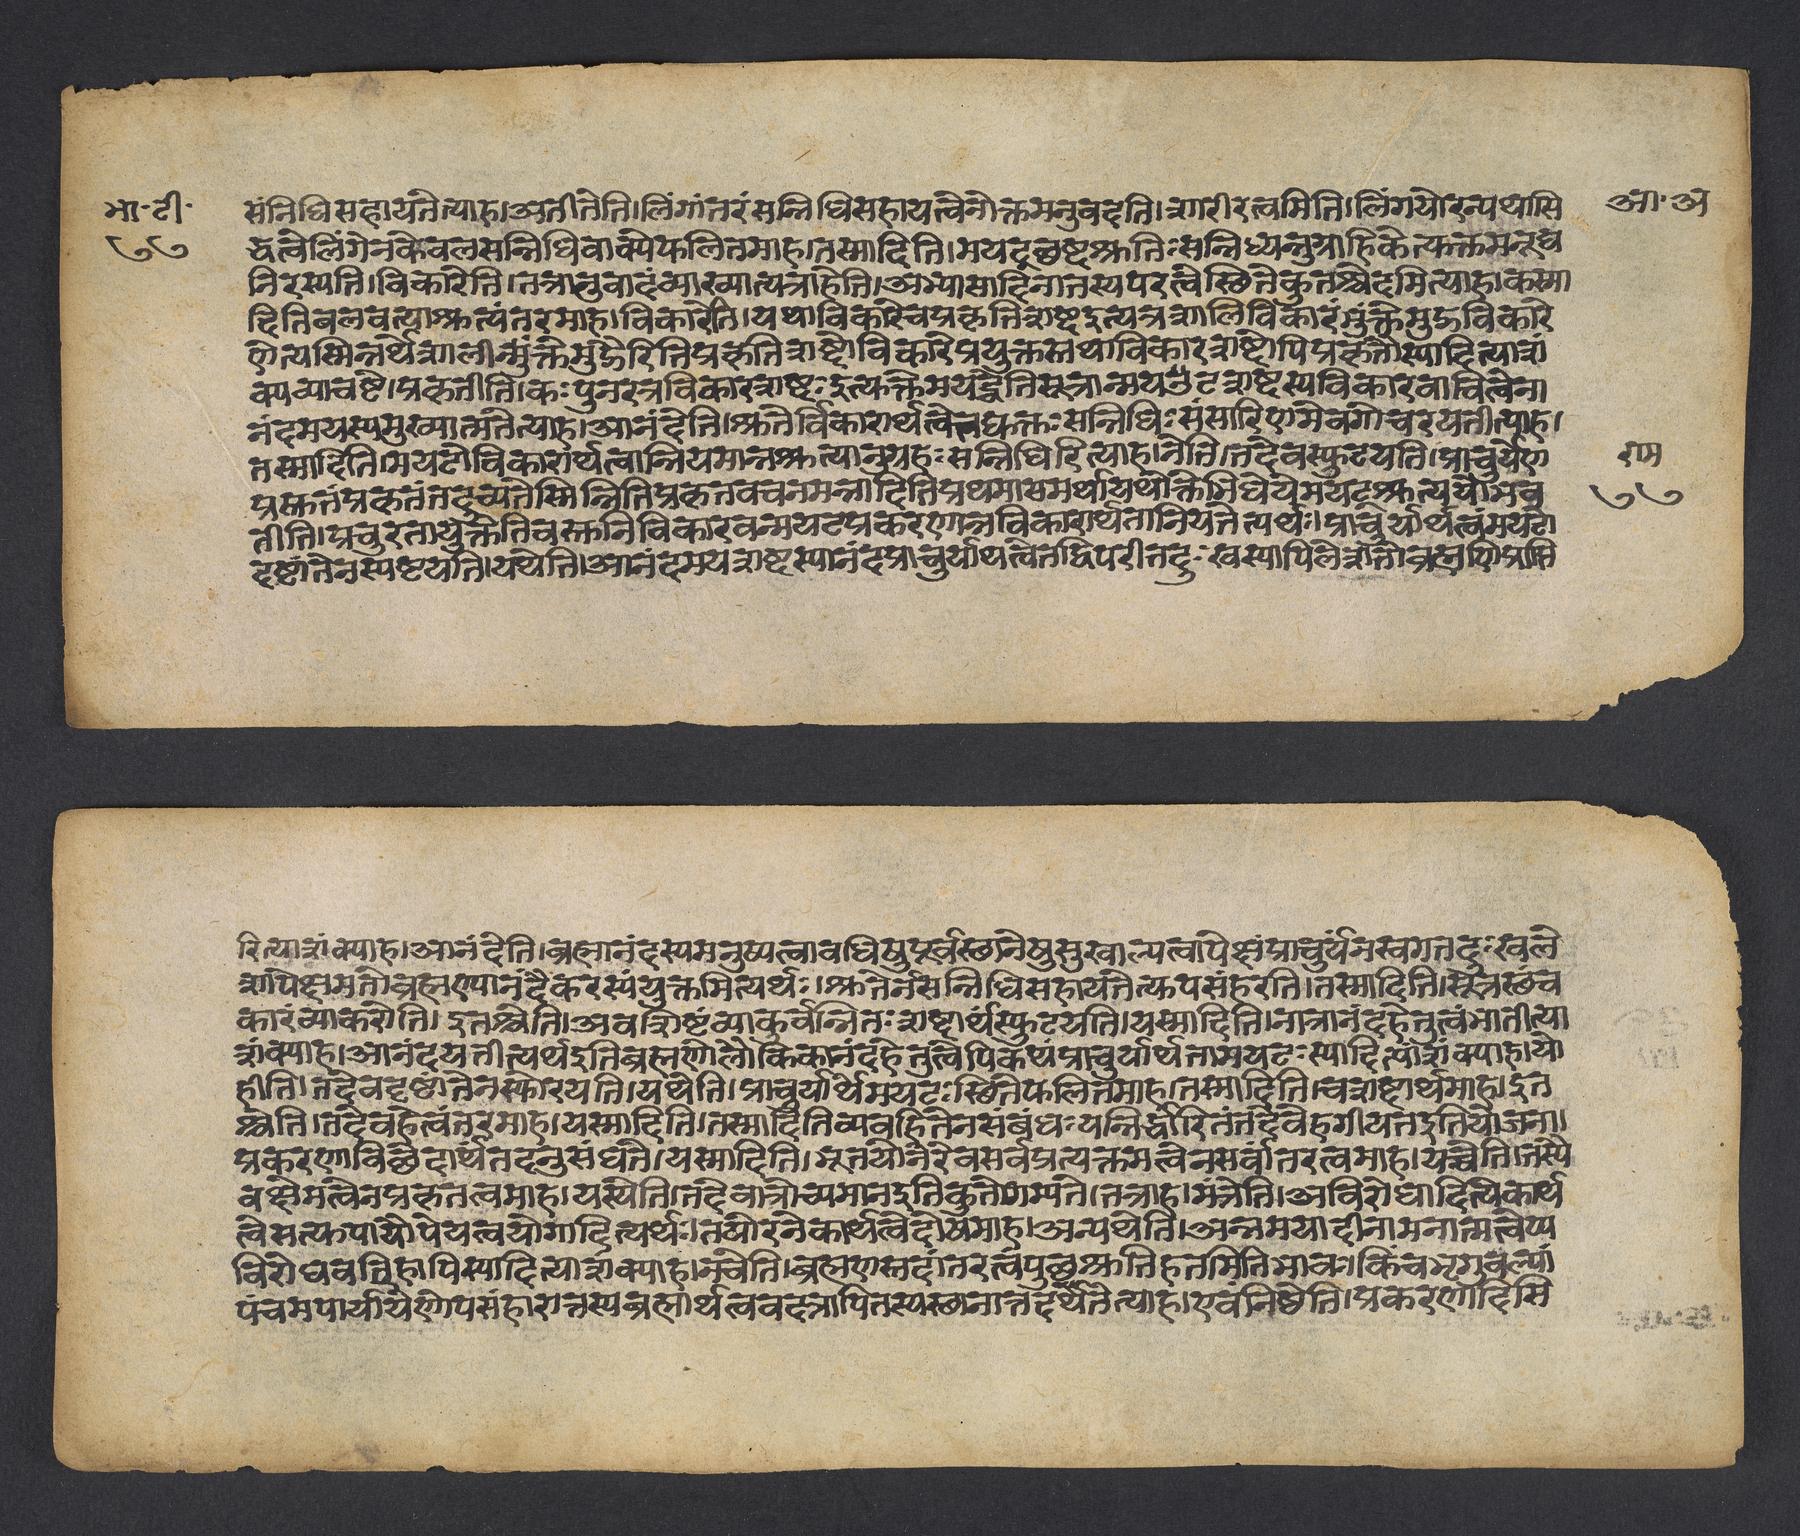 भा॰ टी॰
७७
आ॰ अ
संनिधिसहायंनेत्याह।अतीतेति।लिंगांतरंसन्निधिसहायत्वेनोक्तमनुवदति।शारीरत्वमिति।लिंगयोरन्यथासि
द्धत्वेलिंगेनकेवलसन्निधिवाक्येफलितमाह।तस्मादिति।मयट्छब्दश्रुतिःसन्निध्यनुग्राहिकेत्युक्तमनूद्य
निरस्यति।विकारेति।तत्रानुवादंव्याख्यात्यत्राहेति।अभ्यासादिनातस्यपरत्वेस्थितेकुतश्चेदमित्याह।कस्मा
दितिबलवत्याश्रुत्यंतरमाह।विकारेति।यथाविकारेचप्रकृतिशब्दइत्यत्रशालिविकारंभुंक्तेमुद्गविकारे
णेत्यस्मिन्नर्थेशालीन्भुंक्तेमुद्गैरितिप्रकृतिशब्दोविकारेप्रयुक्तस्तथाविकारशब्दोपिप्रकृतौस्यादित्याशं
क्यव्याचष्टे।प्रकृतीति।कःपुनरत्रविकारशब्दःइत्युक्तेमयड्वेतिसूत्रान्मयडंतशब्दस्यविकारवाचित्वेना
नंदमयस्यमुख्यात्मतेत्याह।आनंदेति।श्रुतेर्विकारार्थत्वेतद्युक्तःसन्निधिःसंसारिणमेवगोचरयतीत्याह।
तस्मादिति।मयटोविकारार्थत्वान्नियमान्नश्रुत्यानुग्रहःसन्निधिरित्याह।नेति।तदेवस्फुटयति।प्राचुर्येण
राम
७७
प्रस्तुतंप्रकृतंतदुच्यतेस्मिन्नितिप्रकृतवचनमन्नादितिप्रथमासमर्थाद्यथोक्तेभिधेयेमयट्श्रुत्यर्थोभव
तीति।प्रचुरतायुक्तेतिवस्तुनिविकारवन्मयटप्रकरणान्नविकारार्थतानियतेत्यर्थः।प्राचुर्यार्थत्वंमयटो
दृष्टांतेनस्पष्टयति।यथेति।आनंदमयशब्दस्यानंदप्राचुर्यार्थत्वेतद्विपरीतदुःखस्यापिलेशतोब्रह्मणिप्राप्ति
रित्याशंक्याह।आनंदेति।ब्रह्मानंदस्यमनुष्यत्वावधिषुपूर्वस्थानेषुसुखाल्पत्वापेक्षंप्राचुर्यंनस्वगतदुःखले
शापेक्षमतोब्रह्मण्यानंदैकरस्यंयुक्तमित्यर्थः।श्रुतेर्नसन्निधिसहायंतेत्युपसंहरति।तस्मादिति।सूत्रस्थंच
कारंव्याकरोति।इतश्चेति।अवशिष्टंव्याकुर्वन्नितःशब्दार्थंस्फुटयति।यस्मादिति।नात्रानंदहेतुत्वंभातीत्या
शंक्याह।आनंदयतीत्यर्थइतिब्रह्मणोलौकिकानंदहेतुत्वेपिकथंप्राचुर्यार्थतामयटःस्यादित्याशंक्याह।यो
हीति।तदेवदृष्टांतेनस्फोरयति।यथेति।प्राचुर्यार्थेमयटःस्थितेफलितमाह।तस्मादिति।चशब्दार्थमाह।इत
श्चेति।तदेवहेत्वंतरमाह।यस्मादिति।तस्मादितिव्यवहितेनसंबंधःयन्निर्द्धारितंतदेवेहगीयतइतियोजना।
प्रकरणाविछेदार्थंतदनुसंधत्ते।यस्मादिति।भूतयोनेरेवसर्वप्रत्यक्तमत्वेनसर्वांतरत्वमाह।यच्चेति।तस्यै
वक्षेमत्वेनप्रकृतत्वमाह।यस्येति।तदेवात्रोच्यमानइतिकुतोगम्यते।तत्राह।मंत्रेति।अविरोधादित्येकार्थ
त्वेसत्युपायोपेयत्वयोगादित्यर्थः।तयोरनेकार्थत्वेदोषमाह।अन्यथेति।अन्नमयादीनामनात्मत्वेप्य
विरोधवत्तिहापिस्यादित्याशंक्याह।नचेति।ब्रह्मणस्तदांतरत्वंपुछश्रुतिहतमितिभावः।किंचभृगुवल्ल्यां
पंचमपार्यायेणोपसंहारात्तस्यब्रह्मार्थत्ववदत्रापितस्यस्थानात्तदर्थतेत्याह।एवंनिष्ठेति।प्रकरणादिमि